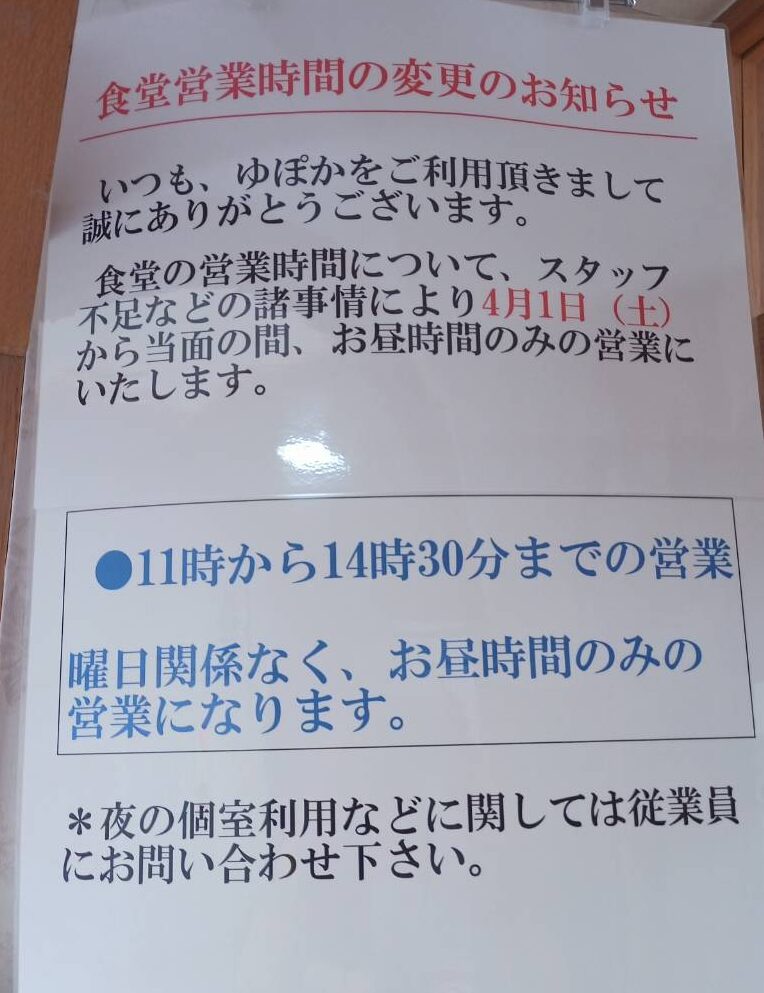 食堂営業時間の変更のお知らせ
いつも、ゆぽかをご利用頂きまして
誠にありがとうございます。
食堂の営業時間について、スタッフ
不足などの諸事情により4月1日（土）
から当面の間、お昼時間のみの営業に
いたします。
●11時から14時30分までの営業
曜日関係なく、お昼時間のみの
営業になります。
＊夜の個室利用などに関しては従業員
にお問い合わせ下さい。